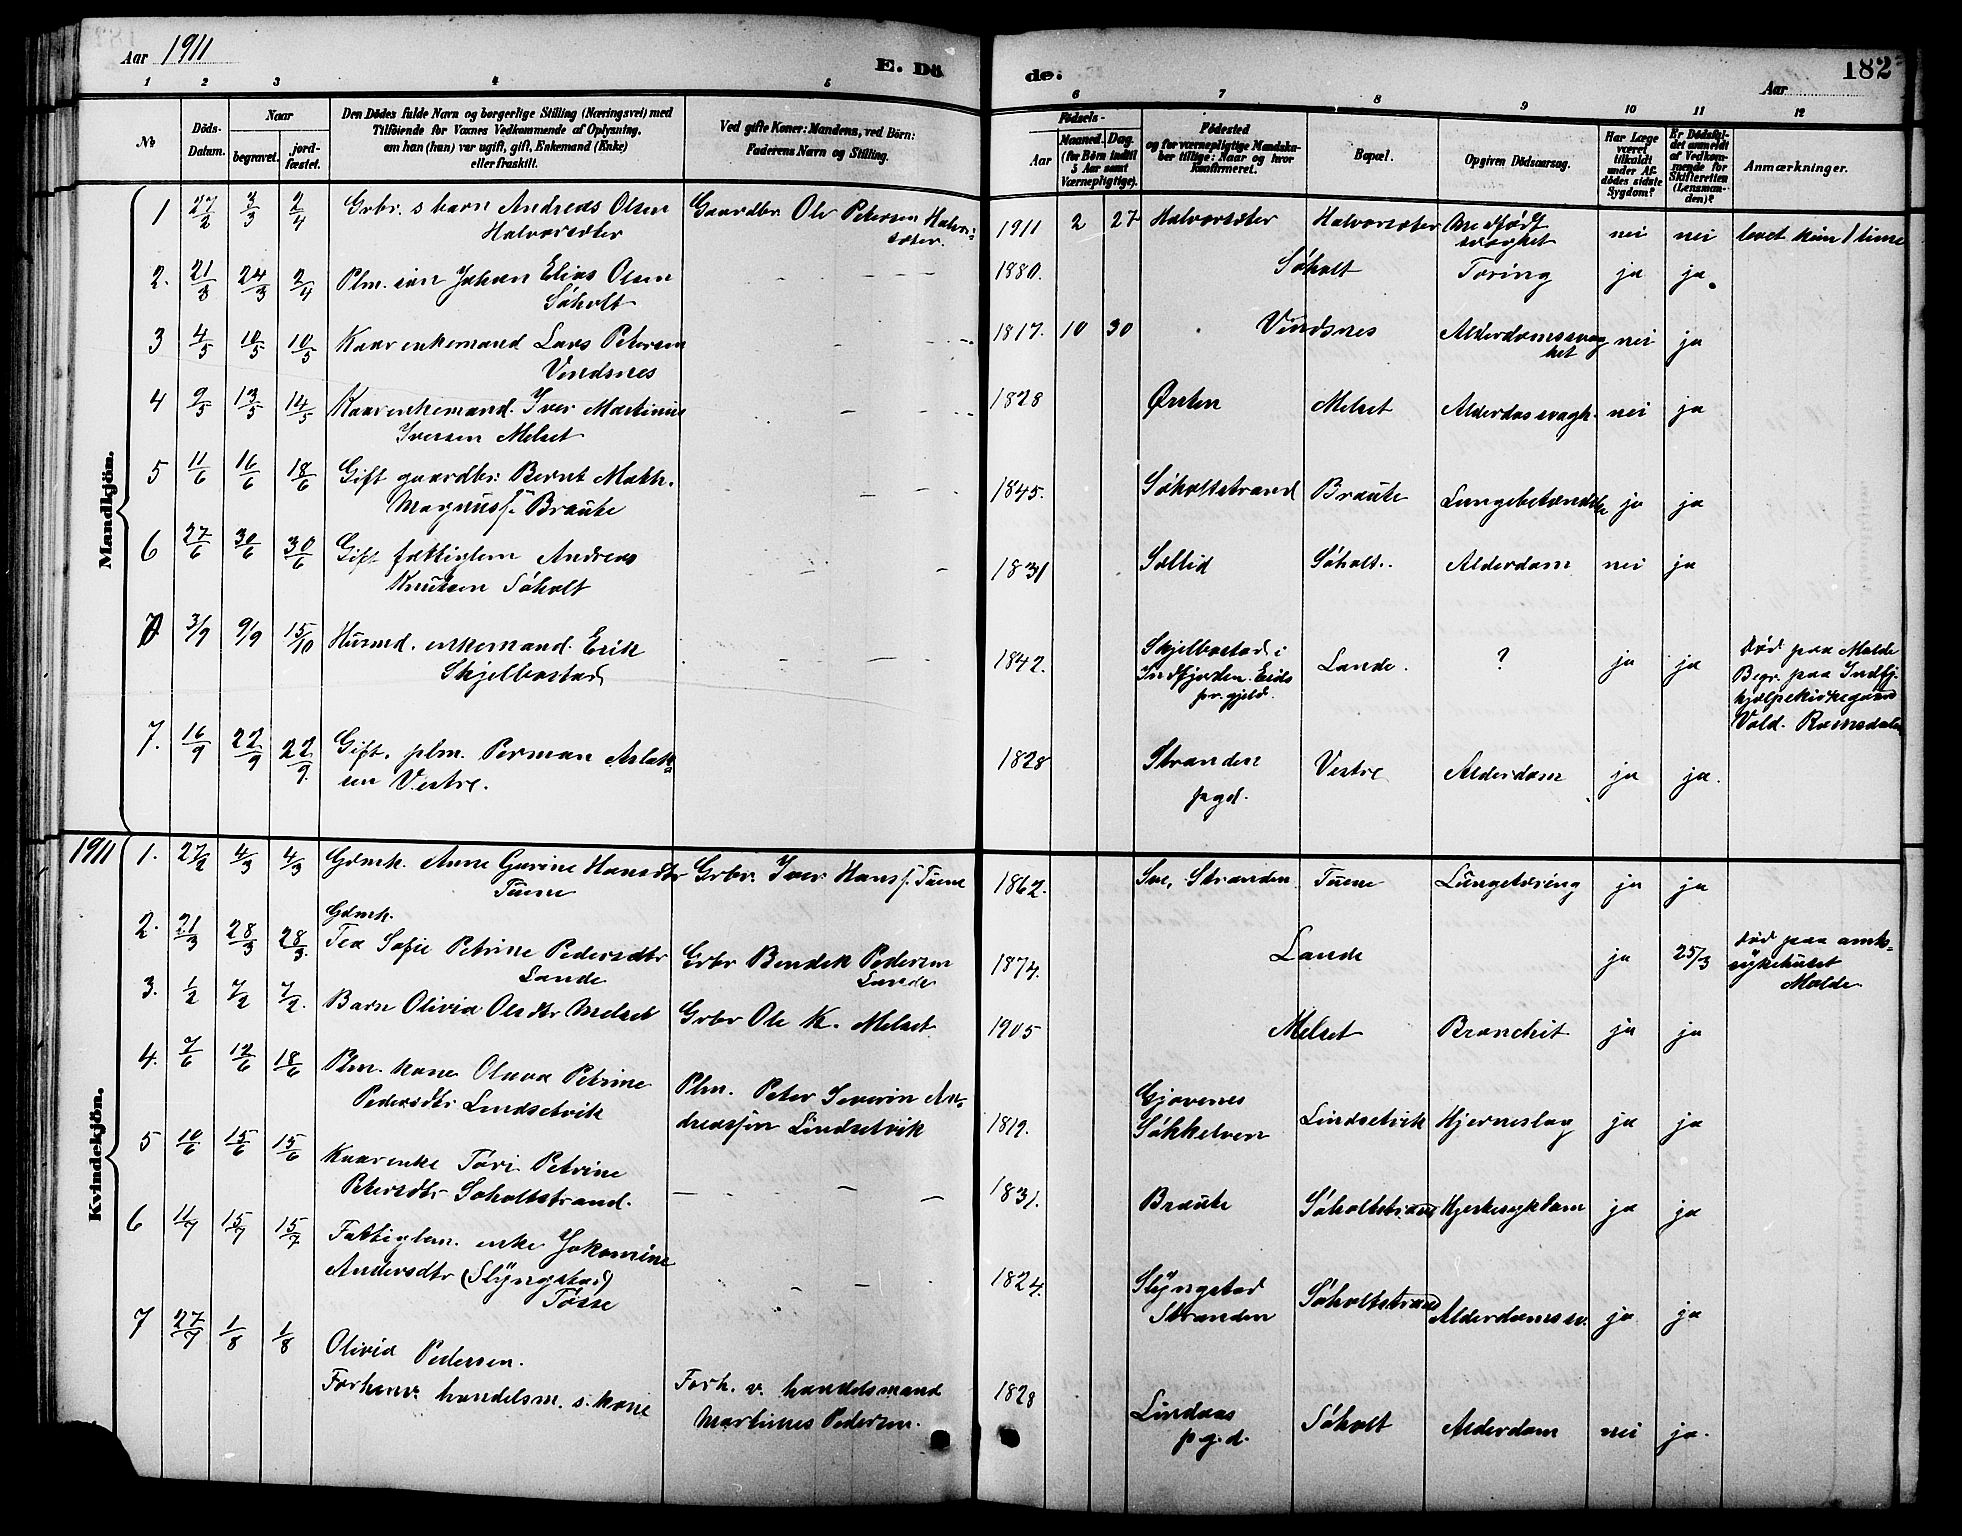 Aar 1911
E. Dö
de.
Aar
182
1 2 3 4 5 6 7 8 9 10 11 12
No
Döds-Datum.
Naar
begravet.
jord-fæstet.
Den Dödes fulde Navn og borgerlige Stilling (Næringsvei) med
Tilföiende for Voxnes Vedkommende af Oplysning,
om han (hun) var ugift, gift, Enkemand (Enke)
eller fraskilt.
Ved gifte Koner: Mandens, ved Börn:
Faderens Navn og Stilling.
Födsels-
Aar
Maaned.
Dag.
(for Börn indtil
5 Aar samt
Værnepligtige).
Födested
og for værnepligtige Mandska-
ber tillige: Naar og hvor
konfirmeret.
Bopæl.
Opgiven Dödsaarsag.
Har Læge
været
tilkaldt
under Af-
dödes sidste
Sygdom?
Er Dödsfal-
det anmeldt
af Vedkom-
mende for
Skifteretten
(Lensman-
den)?
Anmærkninger.
Mandkjön.
1 27/2 3/3 2/4 Grbr. s barn Andreas Olsen
Halvorsæter
Gaardbr. Ole Petersen Halvor-
sæter.
1911 2 27 Halvorsæter Halvorsæter Medfödt
svaghet
nei nei levet kun 1 time
2. 21/3 24/3 2/4 Plm. sön Johan Elias Olsen
Söholt
1880. Söholt Tæring ja ja.
3 4/5 10/5 10/5 Kaarenkemand Lars Petersen
Vindsnes
1817. 10 30 Vindsnes Alderdomssvag
het
nei ja
4 9/5 13/5 14/5 Kaarenkemand. Iver Martinus
Iversen Melset
1828 Ørsten Melset Alderdossvagh. nei ja
5 11/6 16/6 18/6 Gift gaardbr. Bernt Math.
Magnuss. Braute
1845. Söholtstrand Braute Lungebetændelse ja ja
6 27/6 30/6 30/6 Gift fattiglem Andreas
Knutsen Söholt
1831 Söholt.. Alderdom nei ja
3/9 9/9 15/10 Husmd. enkemand. Erik
Skjelbostad
1842. Skjelbostad i
Indfjorden. Eids
pr. gjeld.
Lande. ? ja ja
död paa Molde
Begr. paa Indfj.
hjælpekirkegaard
Vold. Romsdalen
7. 16/9 22/9 22/9. Gift. plm. Perman Aslak-
sen Vestre.
1828 Stranden
pgd.
Vestre Alderdom ja ja.
1911
Kvindekjön.
1. 27/2 4/3 4/3 Gdmk. Anne Gurine Hansdtr
Tuene
Grbr. Iver Hanss. Tuene
1862. Sve, Stranden Tuene Lungetæring ja ja
2. 21/3 28/3 28/3. Gdmk.
Tea Sofie Petrine Pedersdtr
Lande
Grbr Bendek Pedersen
Lande
1874. Lande ja 25/3
död paa amts-
sykehuset
Molde
3. 1/2 7/2 7/2. Barn Olivia Olsdtr Melset
Grbr Ole K. Melset
1905 Melset Bronchit ja ja
4. 7/6 12/6 18/6 Plm. kone Olava Petrine
Pedersdtr Lindsetvik
Plm. Peter Severin An-
dreassen Lindsetvik
1819. Gjævenes
Sökkelven
Lindsetvik Hjerneslag ja ja
5 10/6 15/6 15/6 Kaarenke Töri Petrine
Petersdtr Söholtstrand.
1831. Braute Söholtstrand Hjertesykdom ja ja
6 11/7 15/7 15/7 Fattiglem. enke Jakomine
Andersdtr (Slyngstad)
Tösse
1824. Slyngstad
Stranden
Söholtstrand Alderdomssv. ja ja
7 27/7 1/8 1/8 Olivia Pedersen.
Forhenv. handelsm. s. kone
Forh. v. handelsmand
Martinus Pedersen.
1828 Lindaas
p.g.d.
Söholt Alderdom nei ja.